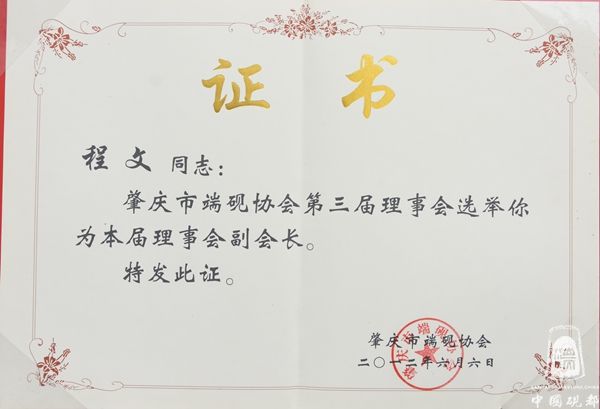 证书
程文 同志：
肇庆市端砚协会第三届理事会选举你
为本届理事会副会长。
特发此证。
肇庆市端砚协会
二〇一二年六月六日
肇庆市端砚协会
中国砚都